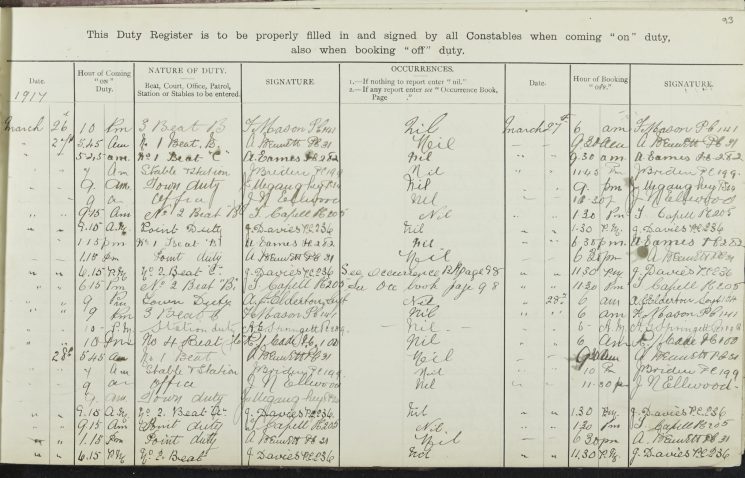 93
This Duty Register is to be properly filled in and signed by all Constables when coming "on" duty,
also when booking "off" duty.
Date. Hour of Coming "on" Duty. NATURE OF DUTY. Beat, Court, Office, Patrol, Station or Stables to be entered. SIGNATURE. OCCURRENCES. 1.—If nothing to report enter "nil." 2.—If any report enter see "Occurrence Book, Page ." Date. Hour of Booking "off." SIGNATURE.
1917
March 26 10 Pm 3 Beat B Mason Pc 141 Nil March 27th 6 am Mason Pc 141
27th 5.45 am No 1 Beat B. A Hewett Pc 31 Nil A Hewett Pc 31
5.25 am No 1 Beat "C" A. Eames Pc 282 Nil 9.30 am A Eames Pc 282
7 Am Stable & Station J Briden Pc 199 Nil 11.45 Pm J Briden Pc 199
9 am Town duty Nil 9 pm
9 am Office J N Ellwood Nil J N Ellwood
9.15 Am No 2 Beat B T Capell Pc 205 Nil 1.30 Pm T Capell Pc 205
9.15 A.M. Point Duty J. Davies Pc 236 Nil 1.30 P.M. J. Davies Pc 236
1.15 pm No 1 Beat "B" A Eames Pc 282 Nil 6.30 pm A Eames Pc 282
Point duty A Hewett Pc 31 Nil 6.30 pm A Hewett Pc 31
6.15 P.M. No 2 Beat C. J. Davies Pc 236 See Occurrence Bk page 98 11.30 P.M. J. Davies Pc 236
6.15 Pm No 2 Beat "B" T Capell Pc 205 See Occ book page 98 11.30 Pm T Capell Pc 205
9 Pm Town Duty A. Elderton Sergt Nil 28th 6 am A Elderton Sergt
9 Pm 3 Beat Mason Pc 141 Nil 6 am Mason Pc 141
10 P.M. Station duty A.G. Springett Pc - Nil - 6 A.M. A G Springett Pc
10 Pm No 4 Beat Cade Pc 100 Nil 6 am Cade Pc 100
28th 5.45 am No 1 Beat A Hewett Pc 31 Nil A Hewett Pc 31
7 Am Stable & Station J Briden Pc 199 Nil 10 Pm J Briden Pc 199
9 am Office J N Ellwood Nil 11.30 pm J N Ellwood
9 am Town duty
9.15 A.M. No 2. Beat C J. Davies Pc 236 Nil 1.30 P.M. J. Davies Pc 236
9.15 Am Point duty T Capell Pc 205 Nil 1.30 Pm T Capell Pc 205
1.15 Pm Point duty A Hewett Pc 31 Nil 6.30 pm A. Hewett Pc 31
6.15 P.M. No 2. Beat J. Davies Pc 236 Nil 11.30 P.M. J. Davies Pc 236